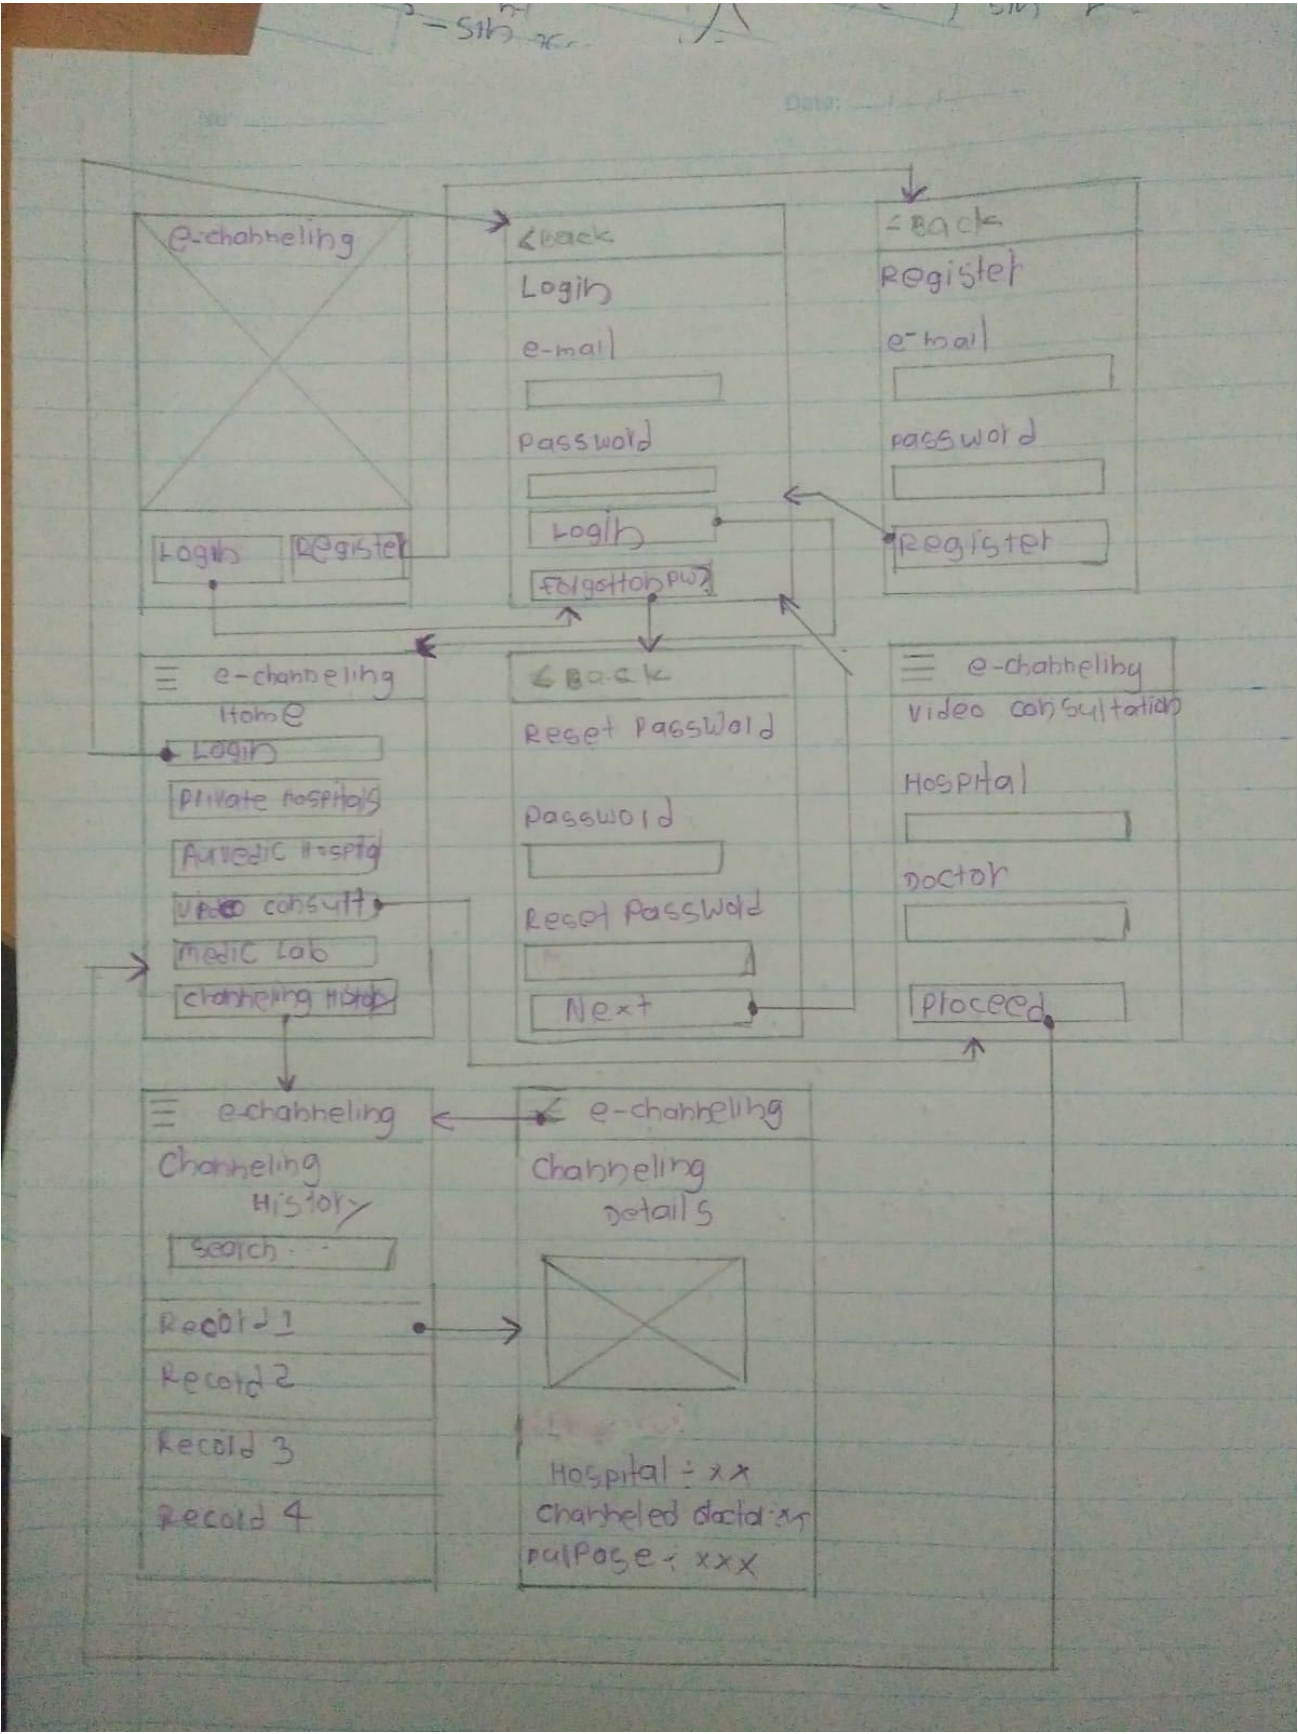 e-channeling
Login
Register
<Back
Login
e-mail
Password
Login
Forgotton pw?
<Back
Register
e-mail
password
Register
e-channeling
Home
Login
Private Hospitals
Video consult
Medic Lab
Channeling History
<Back
Reset Password
Password
Reset Password
Next
e-channeling
Video consultation
Hospital
Doctor
Proceed
e-channeling
Channeling
History
Search...
Record 1
Record 2
Record 3
Record 4
< e-channeling
Channeling
Details
Hospital :- xx
Channeled doctor :-
:- xxx